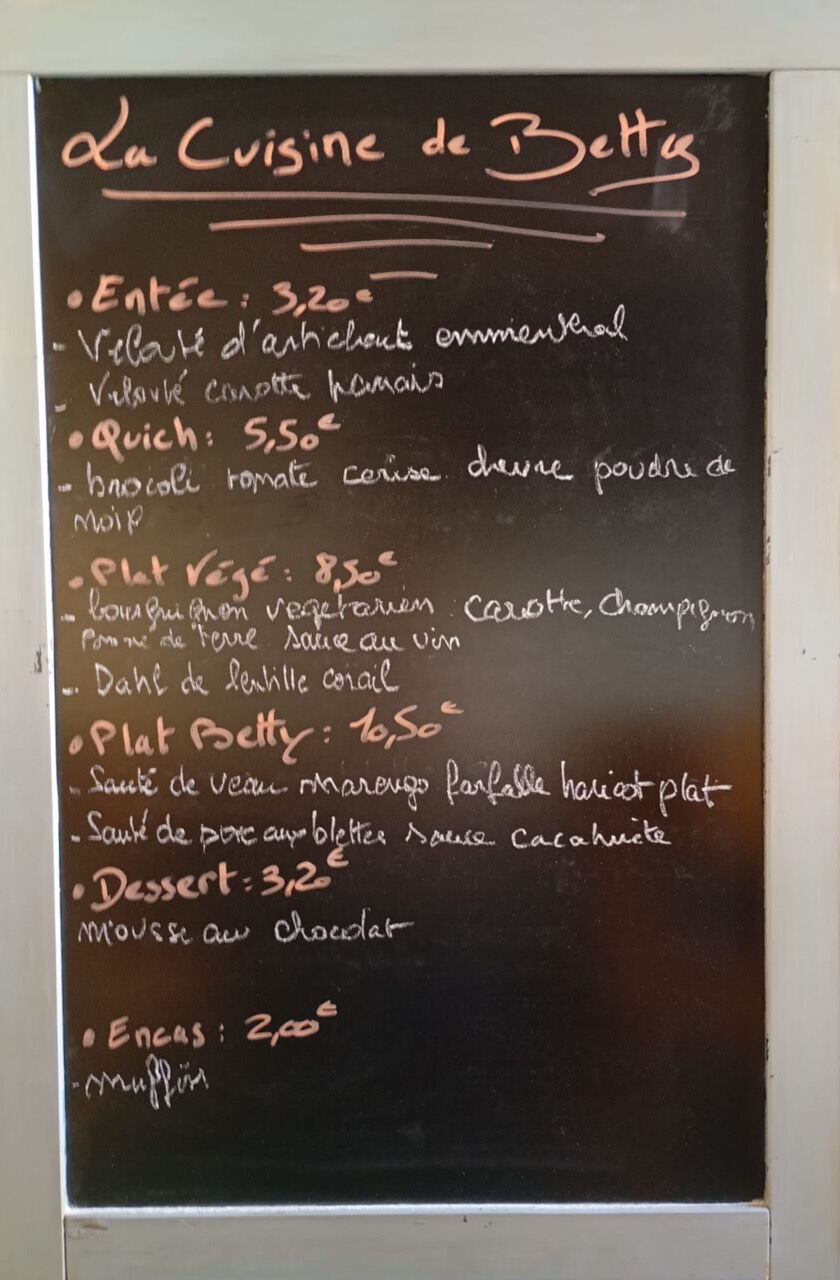 La Cuisine de Betty
• Entée : 3,20€
- Velouté d'artichaut emmenthal
- Velouté carotte panais
• Quich : 5,50€
- brocoli tomate cerise chevre poudre de
noix
• Plat Végé : 8,50€
- bourguignon vegetarien carotte, champignon
pomme de terre sauce au vin
- Dahl de lentille corail
• Plat Betty : 10,50€
- Sauté de veau marengo farfalle haricot plat
- Sauté de porc aux blettes sauce cacahuète
• Dessert : 3,20€
Mousse au chocolat
• Encas : 2,00€
- muffin